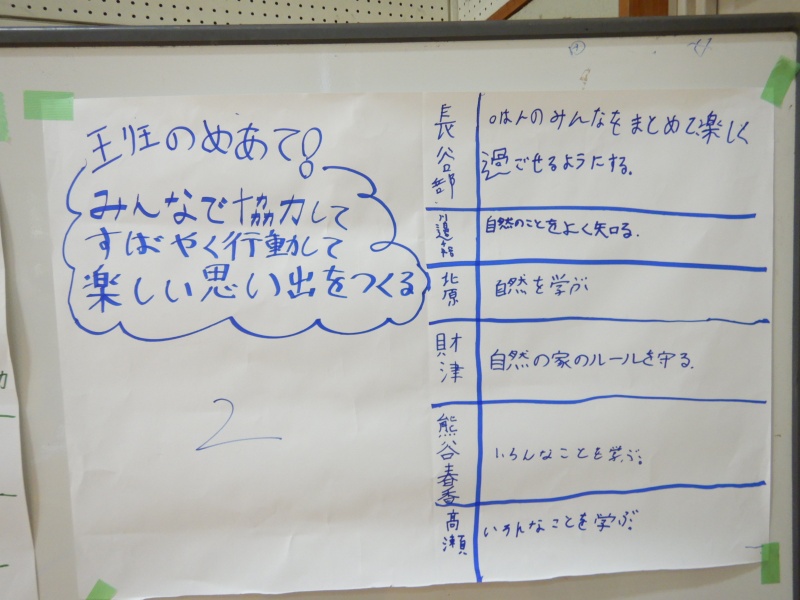 班のめあて!
みんなで協力して
すばやく行動して
楽しい思い出をつくる
2
長谷部
はんのみんなをまとめて楽しく
過ごせるようにする。
自然のことをよく知る。
北原
自然を学ぶ
財津
自然の家のルールを守る。
熊谷春香
いろんなことを学ぶ。
高瀬
いろんなことを学ぶ。